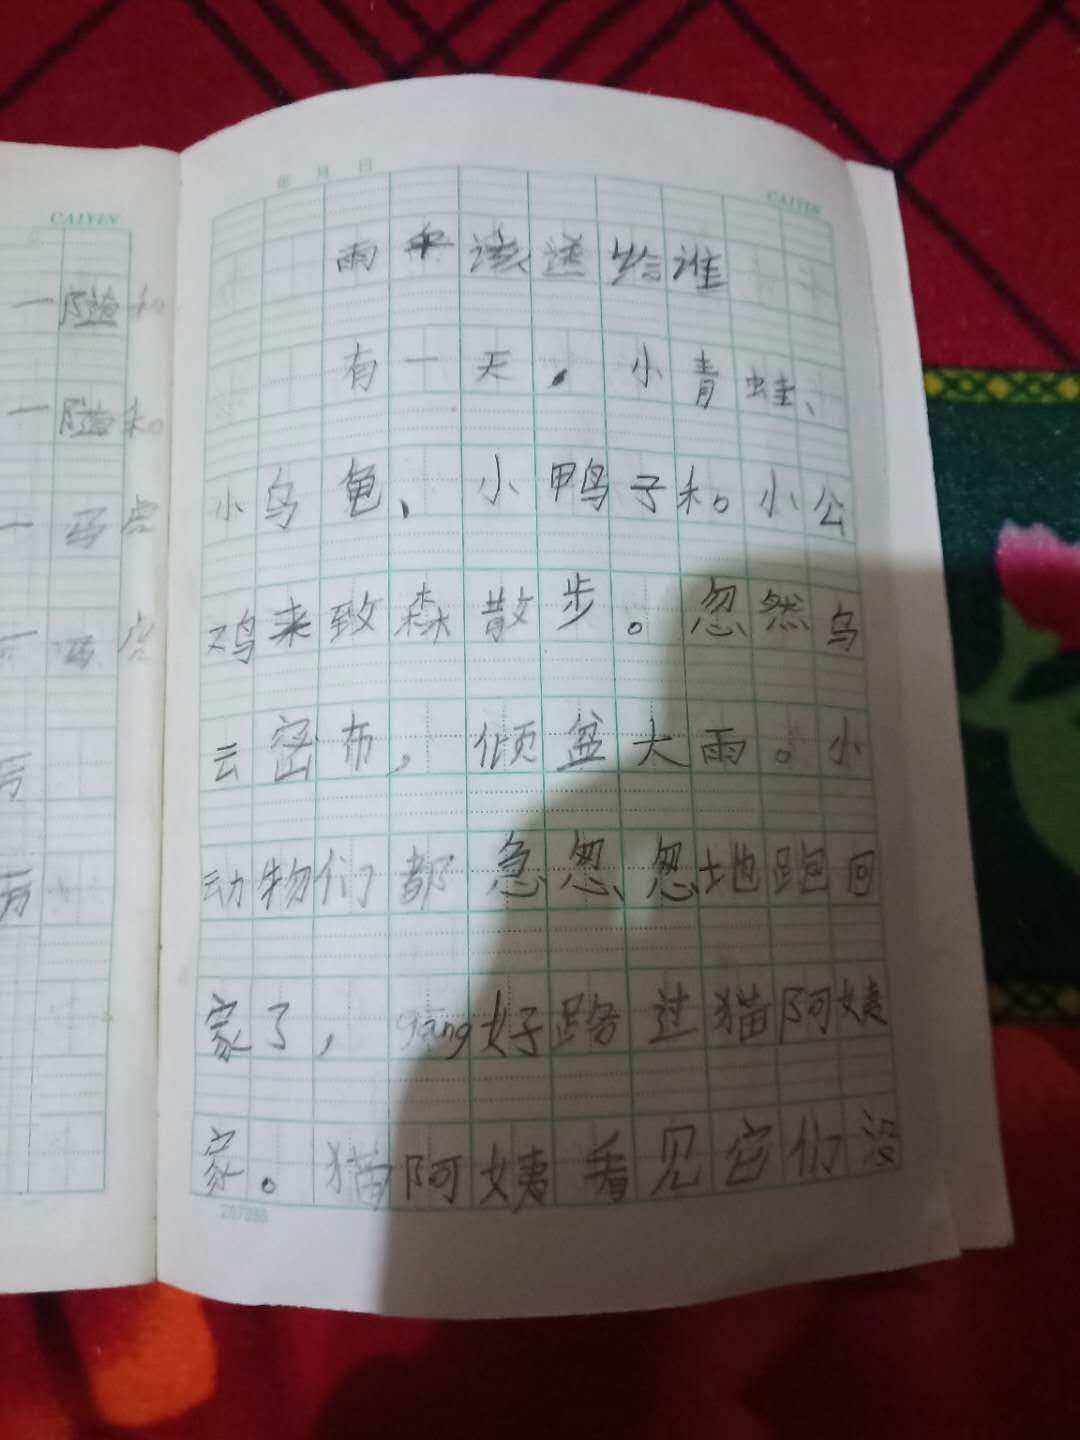 年 月 日
CAIYIN
CAIYIN
雨伞该送给谁
有一天，小青蛙、
小乌龟、小鸭子和小公
鸡来致森散步。忽然乌
云密布，倾盆大雨。小
动物们都急忽忽地跑回
家了，gang好路过猫阿姨
家。猫阿姨看见它们没